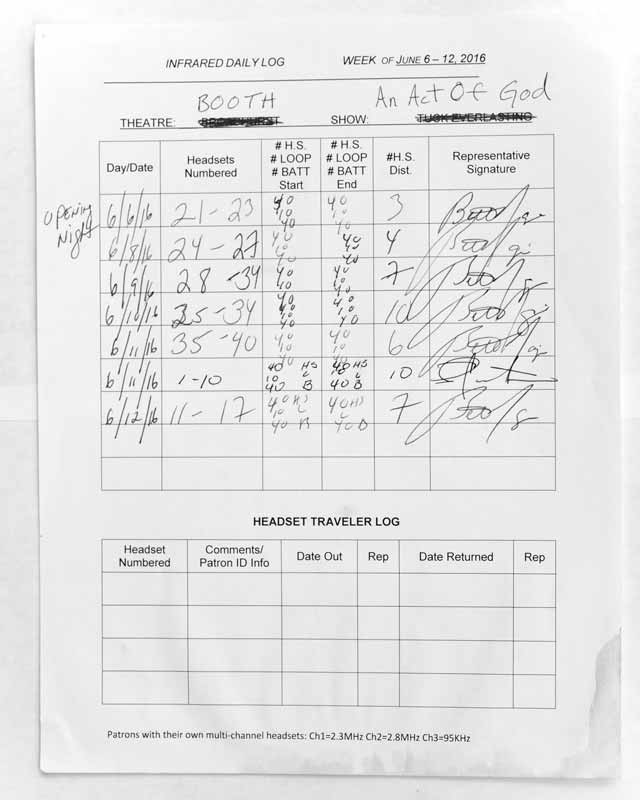 INFRARED DAILY LOG WEEK OF JUNE 6 – 12, 2016
BOOTH An Act Of God
THEATRE: BROADHURST SHOW: TUCK EVERLASTING
Day/Date Headsets Numbered # H.S. # LOOP # BATT Start # H.S. # LOOP # BATT End #H.S. Dist. Representative Signature
OPENING Night
6/6/16 21 - 23 40 10 40 40 10 40 3
6/8/16 24 - 27 40 10 40 40 10 40 4
6/9/16 28 - 34 40 10 40 40 10 40 7
6/10/16 25 - 34 40 10 40 40 10 40 10
6/11/16 35 - 40 40 10 40 40 10 40 6
6/11/16 1 - 10 40 HS 10 L 40 B 40 HS 10 L 40 B 10
6/12/16 11 - 17 40 HS 10 L 40 B 40 HS 10 L 40 B 7
HEADSET TRAVELER LOG
Headset Numbered Comments/ Patron ID Info Date Out Rep Date Returned Rep
Patrons with their own multi-channel headsets: Ch1=2.3MHz Ch2=2.8MHz Ch3=95KHz